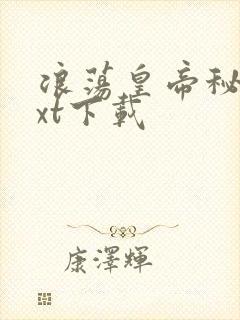 浪蕩皇帝秘
xt下載
康澤輝